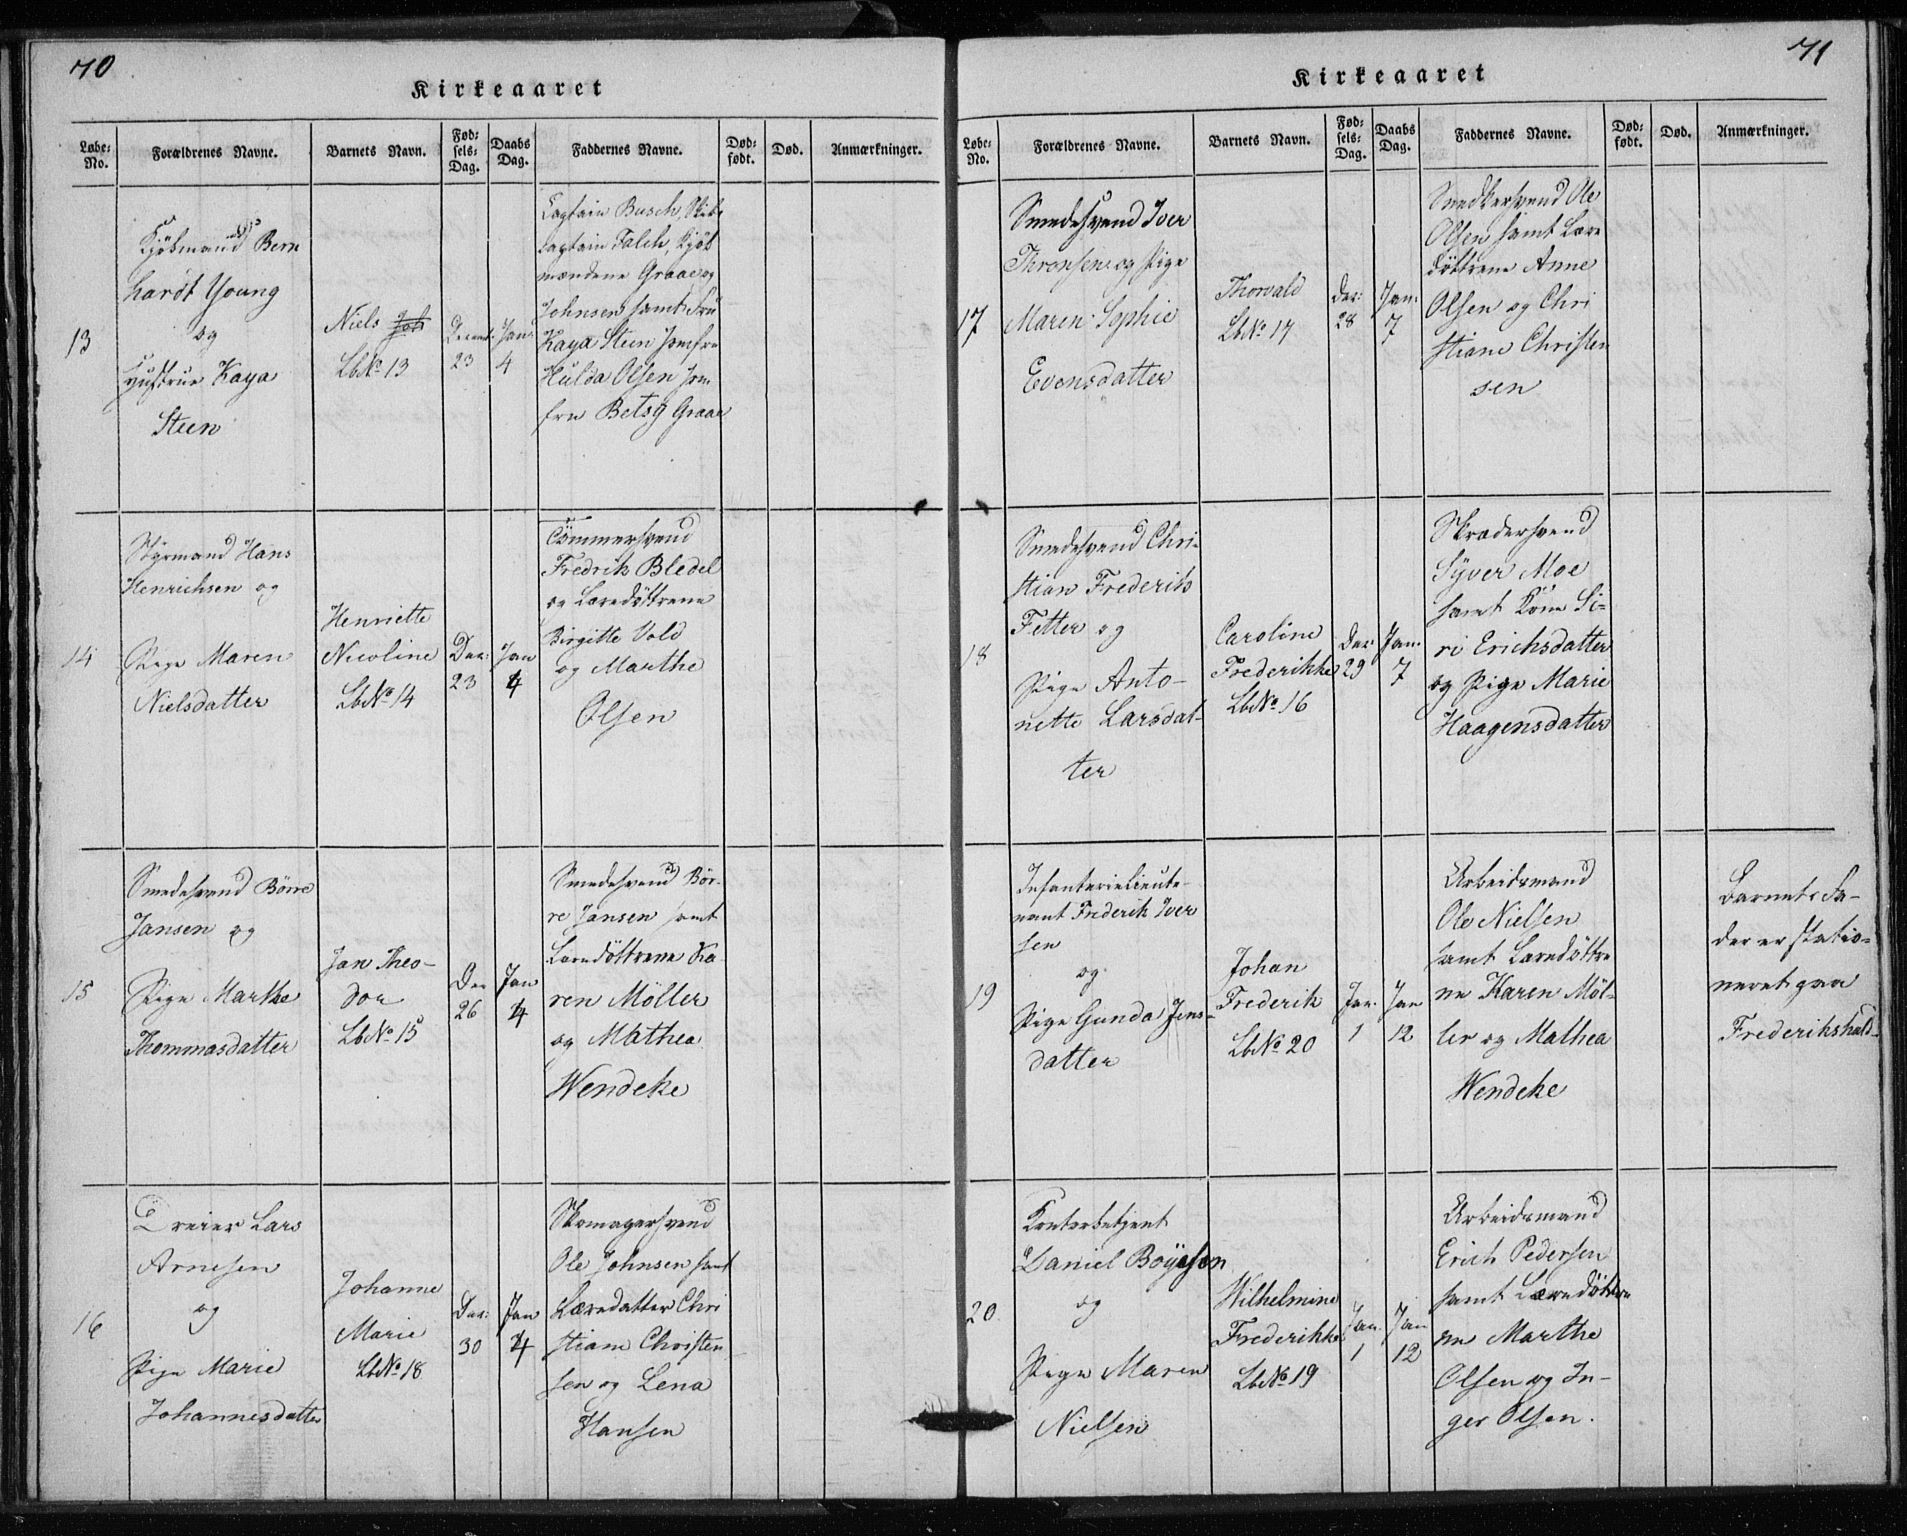 70
Kirkeaaret
Løbe-No.
Forældrenes Navne.
Barnets Navn.
Fød-sels-Dag.
Daabs Dag.
Faddernes Navne.
Død-født.
Død.
Anmærkninger.
13
Kjøbmand Bern
hardt Young
og
Hustrue Kaya
Steen
Niels
Lb No 13
Decemb.
23
Jan
4
Captain Busch, Skibs
captain Falch, Kjøb
mændene Graae og
Johnsen samt Fru
Kaya Steen Jomfru
Hulda Olsen Jom
fru Betsy Graae
14
Styrmand Hans
Henrichsen og
Pige Maren
Nielsdatter
Henriette
Nicoline
Lb No 14
Dec:
23
Jan
4
Tømmersvend
Fredrik Bledel
og Læredöttrene
Birgitte Vold
og Marthe
Olsen
15
Smedesvend Börre
Jansen og
Pige Marthe
Thommasdatter
Jan Theo-
dor
Lb No 15
Dec
26
Jan
4
Smedesvend Bör-
re Jansen samt
Læredöttrene Ka
ren Möller
og Mathea
Wendeke
16
Dreier Lars
Arnesen
og
Pige Marie
Johannesdatter
Johanne
Marie
Lb No 18
Dec:
30
Jan
4
Skomagersvend
Ole Johnsen samt
Læredatter Chri
stiane Christen
sen og Lena
Hansen
71
Kirkeaaret
Løbe-No.
Forældrenes Navne.
Barnets Navn.
Fød-sels-Dag.
Daabs Dag.
Faddernes Navne.
Død-født.
Død.
Anmærkninger.
17
Smedesvend Iver
Thronsen og Pige
Maren Sophie
Evensdatter
Thorvald
Lb No 17
Dec:
28
Jan.
7
Snedkersvend Ole
Olsen samt Lære
döttrene Anne
Olsen og Chri
stiane Christen
sen
18
Smedesvend Chri-
stian Frederik
Fetter og
Pige Anto-
nette Larsdat-
ter
Caroline
Frederikke
Lb No 16
Dec
29
Jan.
7
Skradersvend
Syver Moe
samt Kone Si-
ri Erichsdatter
og Pige Marie
Haagensdatter
19
Infanterielieute-
nant Frederik Iver
sen
og
Pige Gunda Jens-
datter
Johan
Frederik
Lb No 20
Jan.
1
Jan
12
Arbeidsmand
Ole Nielsen
samt Læredöttre
ne Karen Möl-
ler og Mathea
Wendeke
Barnets Fa-
der er statio-
neret paa
Frederikshald
20
Kontorbetjent
Daniel Boyesen
og
Pige Maren
Nielsen
Wilhelmine
Frederikke
Lb No 19
Jan.
1
Jan
12
Arbeidsmand
Erich Pedersen
samt Læredöttre
ne Marthe
Olsen og In-
ger Olsen.